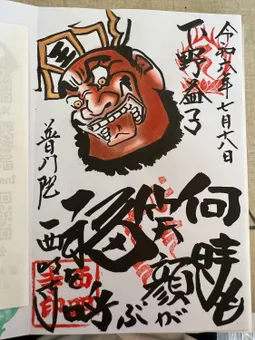 令和六年七月十八日
下野益子
何時も
笑顔が
福を呼ぶ
普門院
西明寺